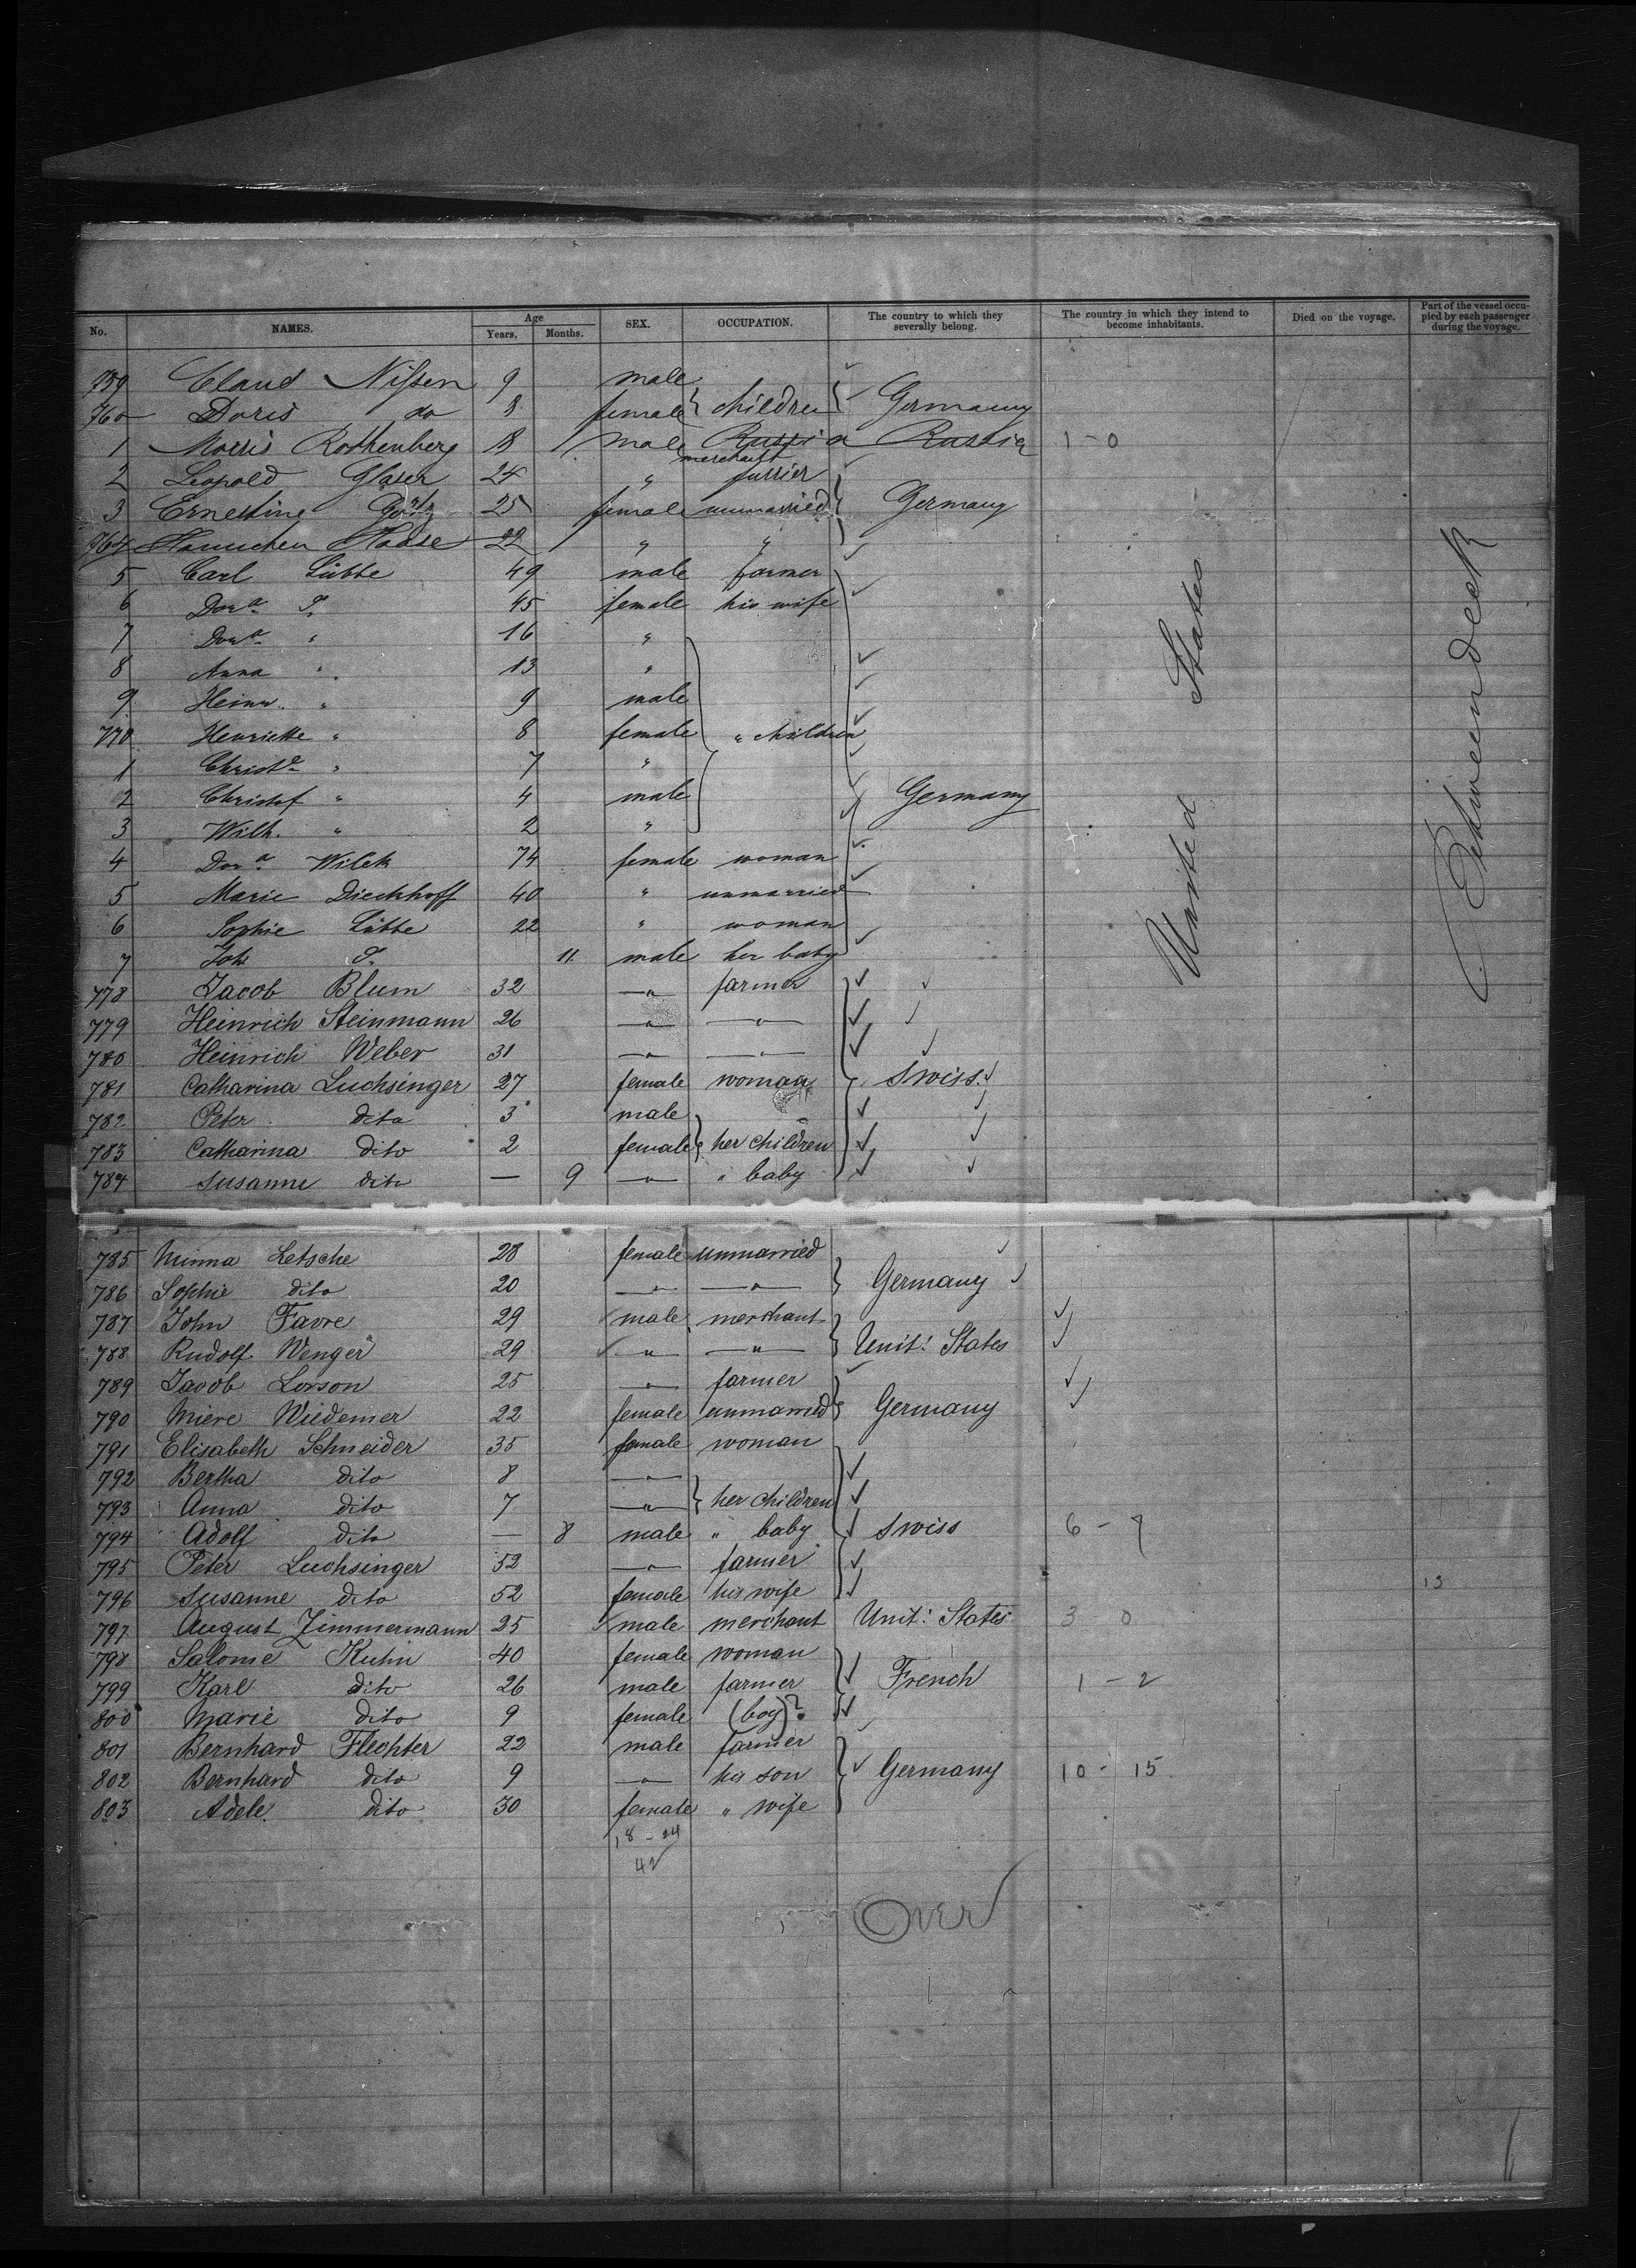 No. NAMES. Age Years. Months. SEX. OCCUPATION. The country to which they severally belong. The country in which they intend to become inhabitants. Died on the voyage. Part of the vessel occupied by each passenger during the voyage.
759 Claus Nissen 9 male
760 Doris do 8 female } children } Germany
1 Morris Rothenberg 18 male Russia merchant Russia 1-0
2 Leopold Glaser 24 " furrier
3 Ernestine 25 female unmarried } Germany
764 Hannchen Haase 22 " "
5 Carl Lübbe 49 male farmer
6 Dora " 45 female his wife
7 Dora " 16 "
8 Anna " 13 "
9 Heinr. " 9 male
770 Henriette " 8 female " children
1 Christe " 7 "
2 Christof " 4 male Germany
3 Wilh. " 2 "
4 Dora Wilck 74 female woman
5 Marie Dieckhoff 40 " unmarried
6 Sophie Lübbe 22 " woman
7 Joh. 11 male her baby
778 Jacob Blum 32 " farmer
779 Heinrich Steinmann 26 " "
780 Heinrich Weber 31 " "
781 Catharina Luchsinger 27 female woman Swiss
782 Peter dito 3 male
783 Catharina dito 2 female } her children
784 Susanne dito — 9 " " baby
United States
Zwischendeck
785 Minna Letsche 28 female unmarried
786 Sophie dito 20 " " } Germany
787 John Favre 29 male merchant
788 Rudolf Wenger 29 " " } Unit: States
789 Jacob Lorson 25 " farmer
790 Wiedemer 22 female unmarried } Germany
791 Elisabeth Schneider 35 female woman
792 Bertha dito 8 "
793 Anna dito 7 " } her children
794 Adolf dito — 8 male " baby Swiss 6-7
795 Peter Luchsinger 52 " farmer
796 Susanne dito 52 female his wife 13
797 August Zimmermann 25 male merchant Unit: States 3-0
798 Salome Kuhn 40 female woman
799 Karl dito 26 male farmer French 1-2
800 Marie dito 9 female (boy)?
801 Bernhard Flechter 22 male farmer
802 Bernhard dito 9 " his son Germany 10-15
803 Adele dito 30 female " wife
18-24
42
Over